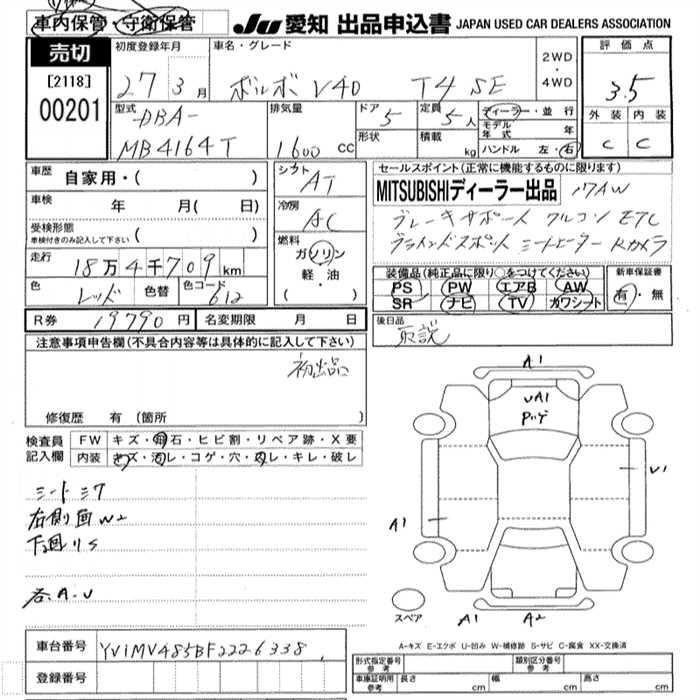 車内保管・守衛保管
JU 愛知 出品申込書 JAPAN USED CAR DEALERS ASSOCIATION
売切
[2118]
00201
初度登録年月
27 3月
車名・グレード
ボルボ V40 T4 SE
2WD・4WD
評価点
3.5
外装 内装
C C
型式
DBA-
MB4164T
排気量
1600 cc
ドア 5
形状
定員 5人
積載 kg
ディーラー・並行
モデル年式 年
ハンドル 左・右
車歴 自家用・( )
車検 年 月( 日)
受検形態
車検付きのみ記入して下さい ( )
走行 18万4千709km
色 レッド 色替 色コード 612
シフト AT
冷房 AC
燃料
ガソリン
軽・油
( )
セールスポイント(正常に機能するものに限ります)
MITSUBISHIディーラー出品 17AW
ブレーキサポート クルコン ETC
ブラインドスポット シートヒーター Rカメラ
装備品(純正品に限り○をつけてください)
PS PW エアB AW
SR ナビ TV カワシート
新車保証書
有・無
R券 19790円 名変期限 月 日
後日品
取説
注意事項申告欄(不具合内容等は具体的に記入して下さい)
初出品
修復歴 有 (箇所 )
検査員記入欄
FW キズ・飛石・ヒビ割・リペア跡・X要
内装 キズ・汚レ・コゲ・穴・スレ・キレ・破レ
シートシワ
右側面W2
下廻りS
各A.U
A1
UA1
U1
A1
A1 A2
スペア
A-キズ E-エクボ U-凹み W-補修跡 S-サビ C-腐食 XX-交換済
車台番号 YV1MV485BF2226338
登録番号
形式指定番号 参考
類別区分番号 参考
車庫証明用 参考 長さ cm 幅 cm 高さ cm